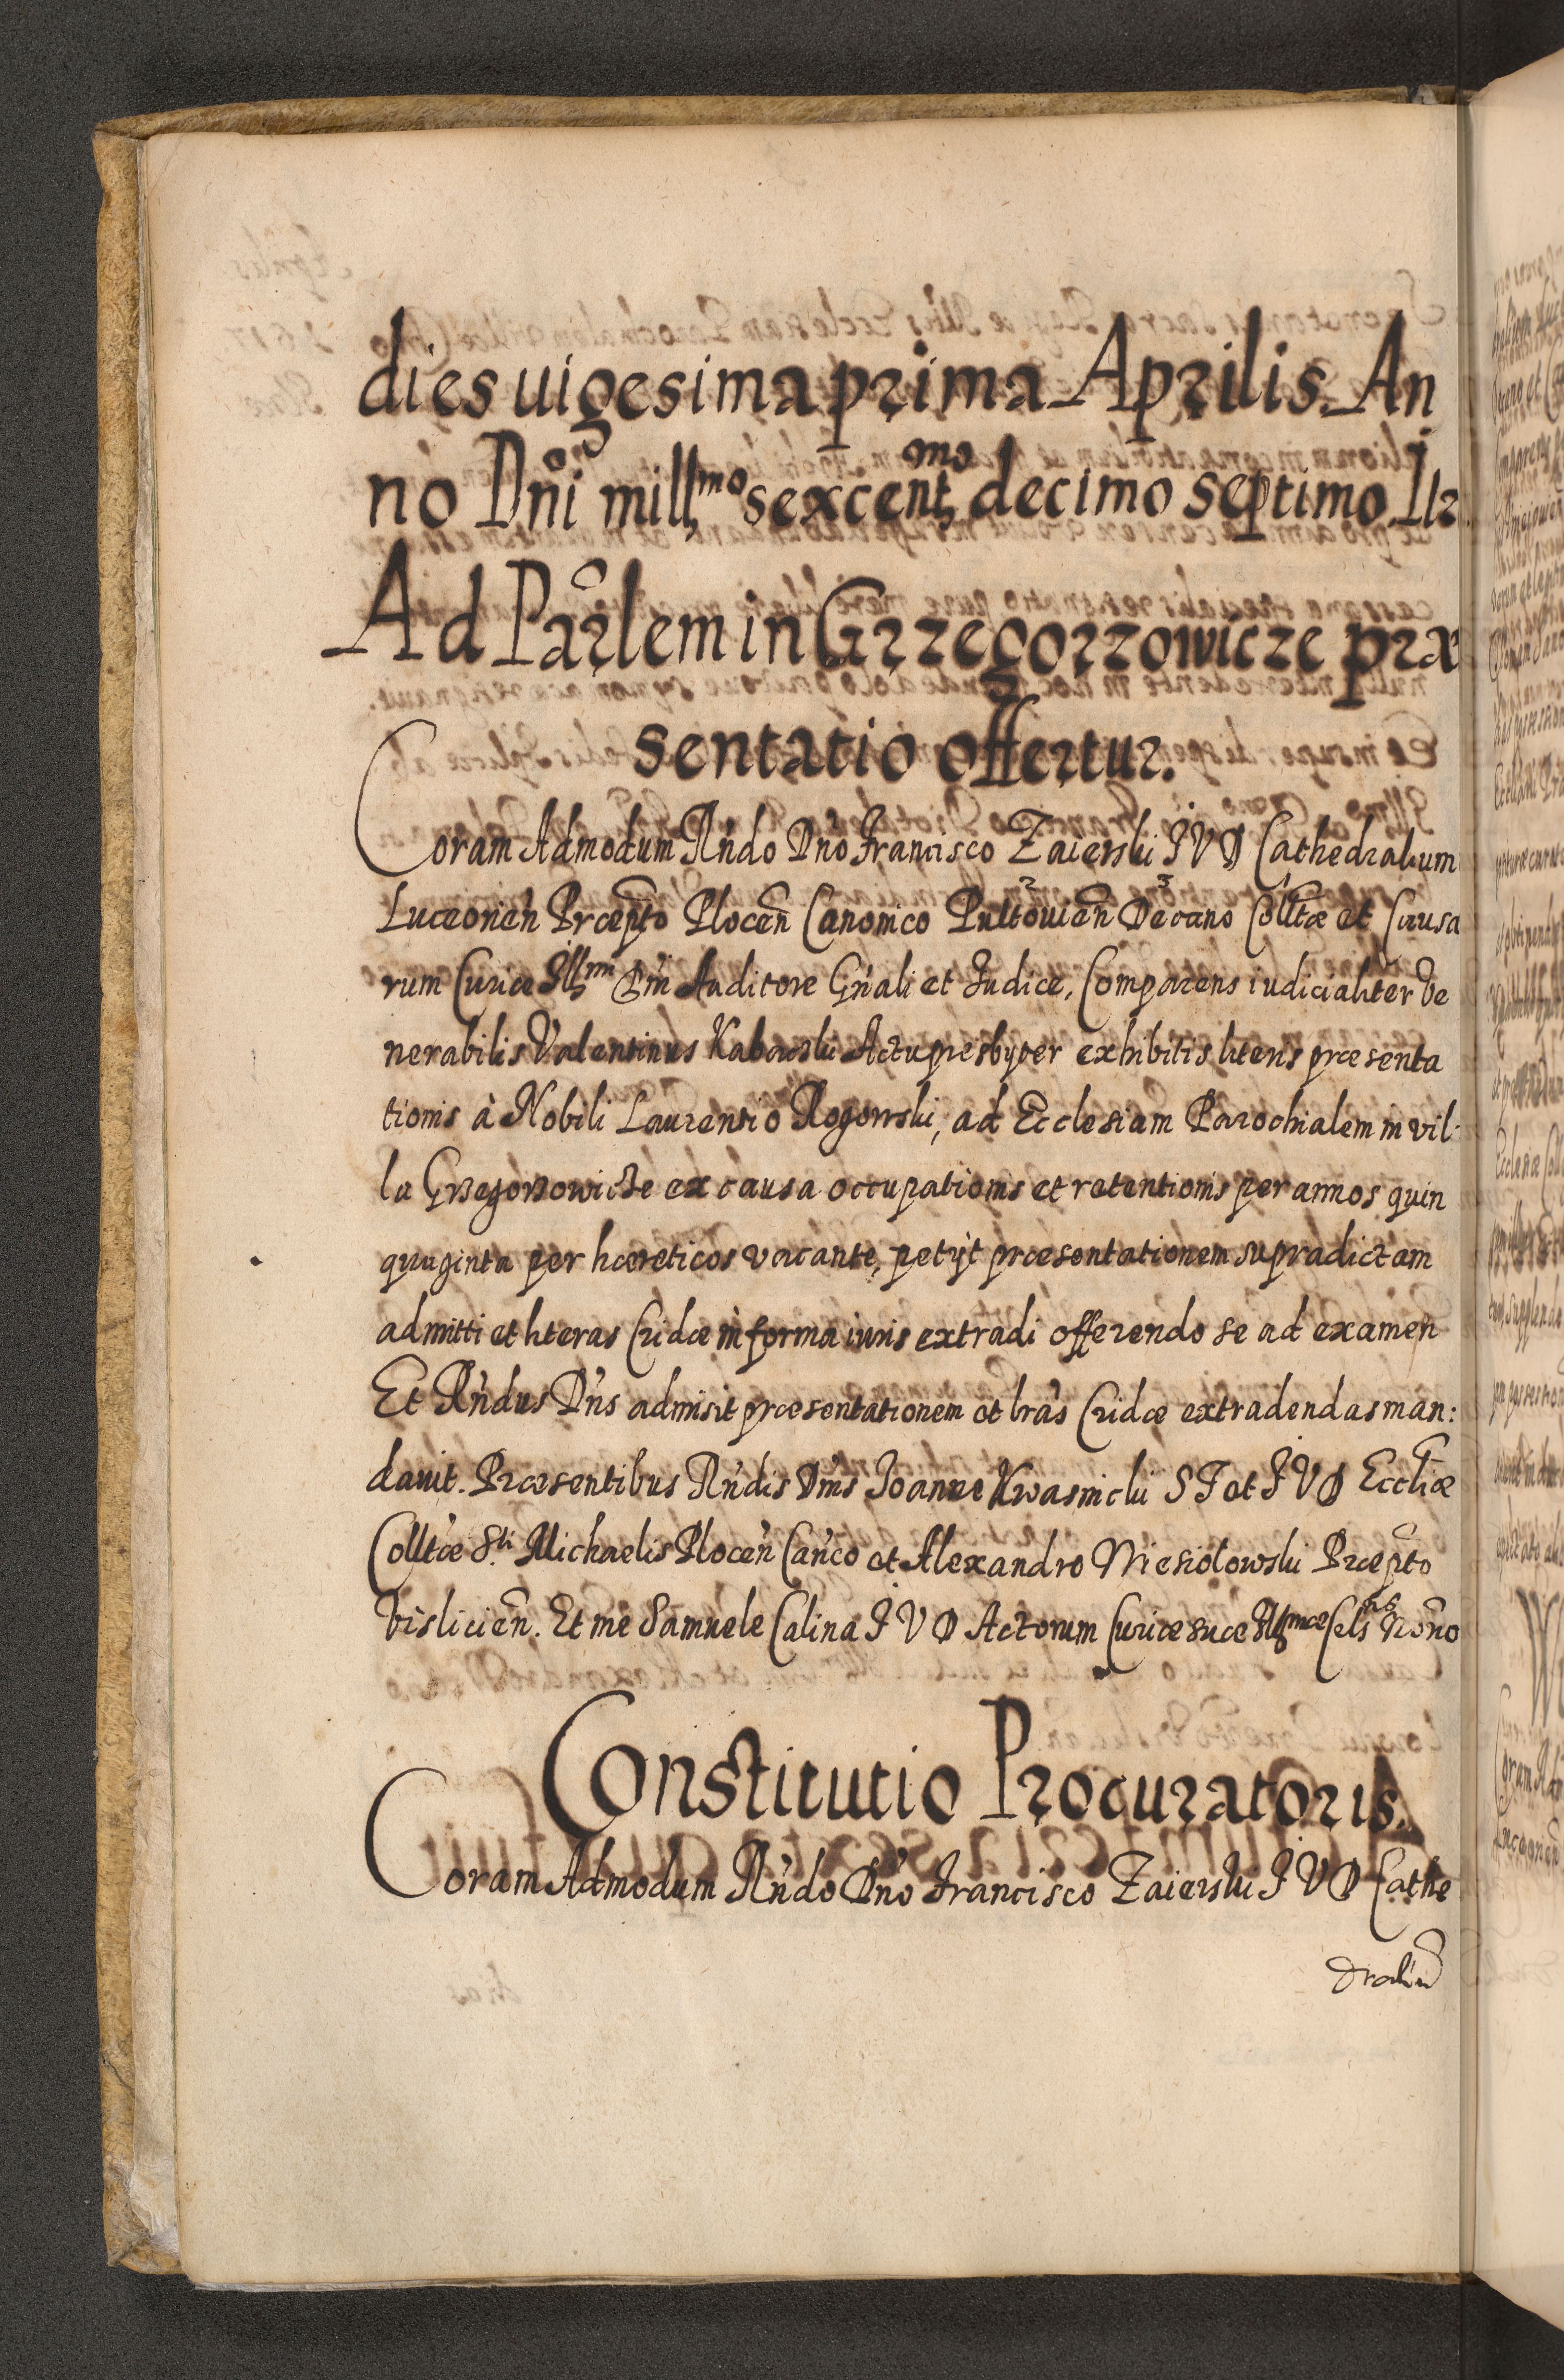 dies uigesima prima Aprilis. An
no Dñi mill<sup>mo</sup> sexcent<sup>mo</sup> decimo septimo Ilz
Ad Parlem in Grzegorzowicze præ
sentatio offertur.
Coram Admodum Rñdo Dño Francisco Zaierski I V D Cathedralium
Luceorien̄ Præpto Plocen̄ Canonico Pultouien̄ Decano Colltæ et Causa
rum Curiæ Ill<sup>mi</sup> Dñi Auditore Gñali et Iudice, Comparens iudicialiter Ve
nerabilis Valentinus Kabacski Actu presbyter exhibitis literis præsenta
tionis à Nobili Laurentio Rogowski, ad Ecclesiam Parochialem in vil:
la Grzegorzowicze ex causa occupationis et retentionis per annos quin
quaginta per hæreticos vacante, petijt præsentationem supradictam
admitti et literas Cridæ in forma iuris extradi offerendo se ad examen
Et Rñdus Dñs admisit præsentationem et lras Cridæ extradendas man:
dauit. Præsentibus Rñdis Dñis Ioanne Kwasnicki S T et I V D Eccliæ
Colltæ S.<sup>ti</sup> Michaelis Plocen̄ Canco et Alexandro Wiesiolowski Præpto
Vislicien̄. Et me Samuele Calina I V D Actorum Curiæ suæ Ill<sup>mæ</sup> Cels<sup>nis</sup> Norio
Constitutio Procuratoris.
Coram Admodum Rñdo Dño Francisco Zaierski I V D Cathe
draliū